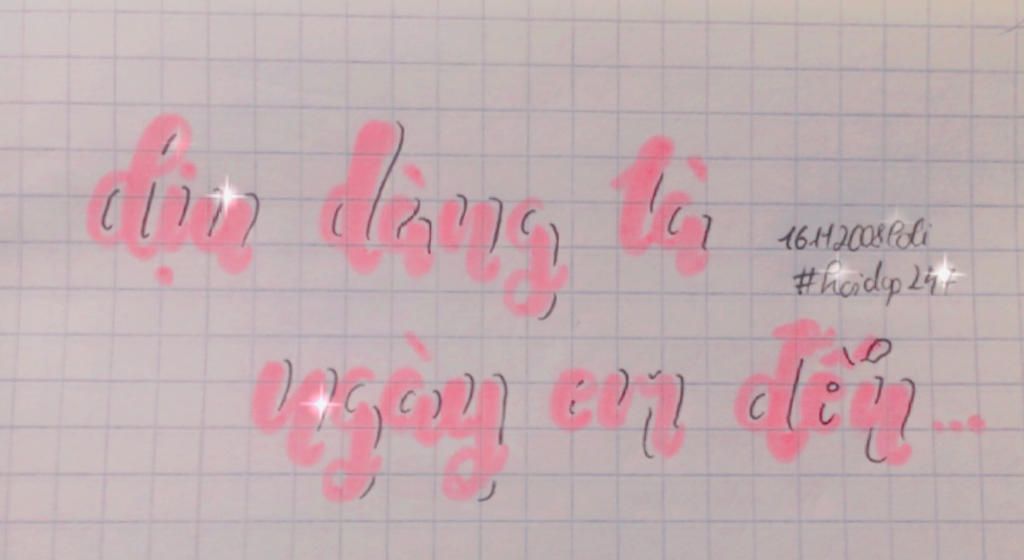 dịu dàng là
16112008Poli
#hoidap247
ngày em đến...